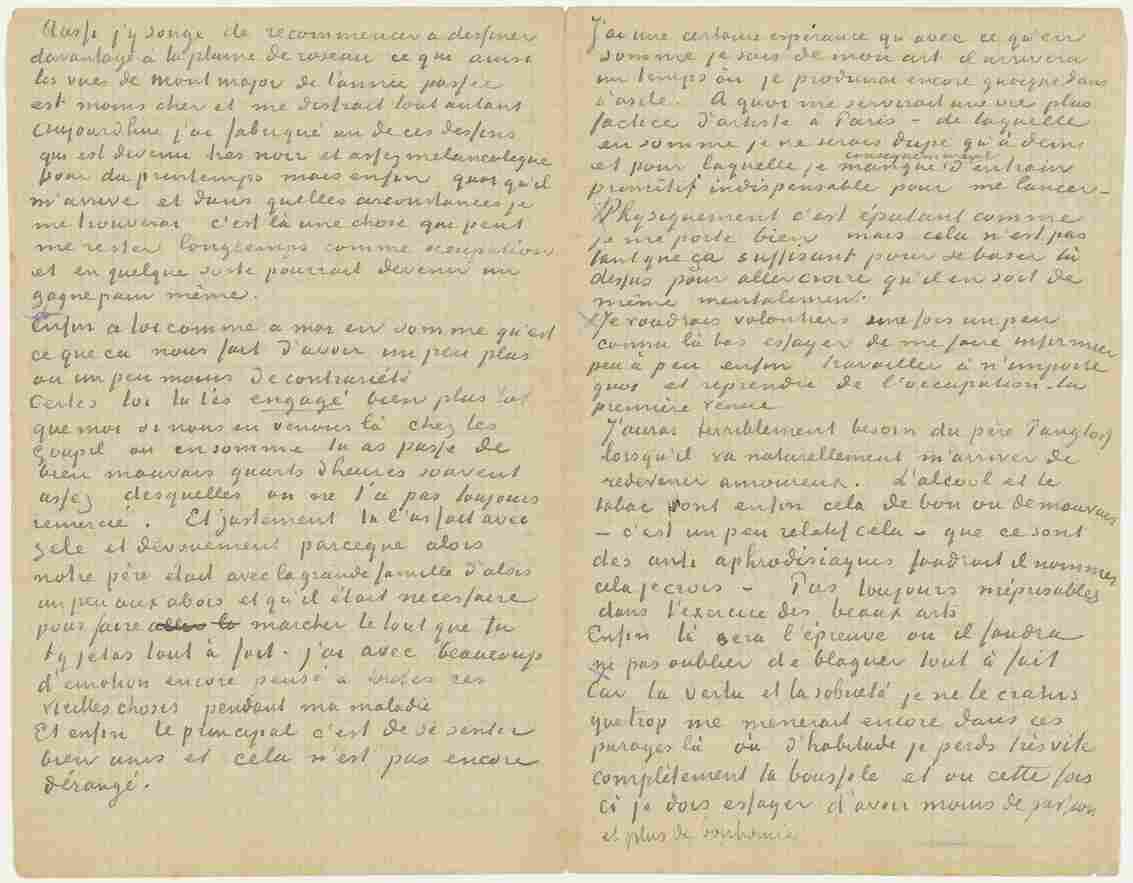 Aussi j'y songe de recommencer a dessiner
davantage à la plume de roseau ce que ainsi
les vues de Mont major de l'année passée
est moins cher et me distrait tout autant
aujourdhui j'ai fabriqué un de ces dessins
qui est devenu très noir et assez melancolique
pour du printemps mais enfin quoi qu'il
m'arrive et dans quelles circonstances je
me trouverai c'est là une chose qui peut
me rester longtemps comme occupation
et en quelque sorte pourrait devenir un
gagne pain même.
Enfin a toi comme a moi en somme qu'est
ce que ca nous fait d'avoir un peu plus
ou un peu moins de contrariété
Certes toi tu t'es engagé bien plus tot
que moi si nous en venons là chez les
Goupil ou en somme tu as passé de
bien mauvais quarts d'heures souvent
assez desquelles on ne t'a pas toujours
remercié. Et justement tu l'as fait avec
zele et dévouement parceque alors
notre père était avec la grande famille d'alors
un peu aux abois et qu'il était necessaire
pour faire aller la marcher le tout que tu
t'y jetas tout à fait. j'ai avec beaucoup
d'emotion encore pensé a toutes ces
vieilles choses pendant ma maladie
Et enfin le principal c'est de se sentir
bien unis et cela n'est pas encore
dérangé.
J'ai une certaine espérance qu'avec ce qu'en
somme je sais de mon art il arrivera
un temps où je produirai encore quoique dans
l'asile. A quoi me servirait une vie plus
factice d'artiste à Paris – de laquelle
en somme je ne serais dupe qu'à demi
et pour laquelle je manque consequemment d'entrain
primitif indispensable pour me lancer –
Physiquement c'est épatant comme
je me porte bien mais cela n'est pas
tant que ça suffisant pour se baser là
dessus pour aller croire qu'il en soit de
même mentalement.
Je voudrais volontiers une fois un peu
connu là bas essayer de me faire infirmier
peu à peu enfin travailler à n'importe
quoi et reprendre de l'occupation – la
première venue
J'aurai terriblement besoin du père Pangloss
lorsqu'il va naturellement m'arriver de
redevenir amoureux. L'alcool et le
tabac ont enfin cela de bon ou de mauvais
– c'est un peu relatif cela – que ce sont
des anti aphrodisiaques faudrait il nommer
cela je crois – Pas toujours méprisables
dans l'exercice des beaux arts
Enfin là sera l'épreuve ou il faudra
ne pas oublier de blaguer tout à fait
Car la vertu et la sobriété je ne le crains
que trop me menerait encore dans ces
parages là où d'habitude je perds très vite
complètement la boussole et ou cette fois
ci je dois essayer d'avoir moins de passion
et plus de bonhomie